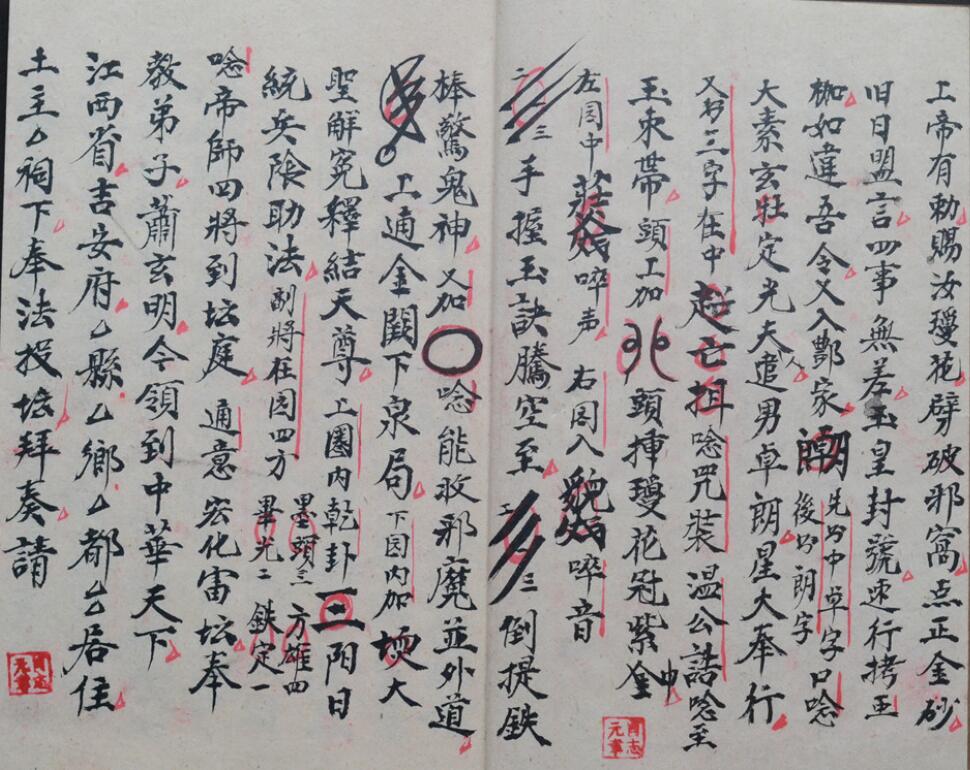 上帝有勅賜汝瓊花劈破邪窩点正金砂
旧日盟言四事無差玉皇封號速行拷
枷如違吾令又入酆家 後书朗字 先书中卓字口唸
大素玄牡定光夫追男卓朗星大奉行
又书三字在中 唸咒裝温公誥唸至
玉束帶頭上加 頭挿瓊花冠紫金
左图中 啐声 右图入 啐音
二一三手握玉訣騰空至二一三倒提鉄
棒驚鬼神又加〇唸能收邪魔並外道
上通金闕下泉局下图内加 大
聖解冤釋結天尊上圈内乾卦三阳日
統兵隂助法副將在图四方 墨頭三 畢光二 方雄四 鉄定一
唸帝師四將到坛庭通意宏化雷坛奉
教弟子蕭玄明今領到中華天下
江西省吉安府厶縣厶鄉厶都厶居住
土主厶祠下奉法投坛拜奏請